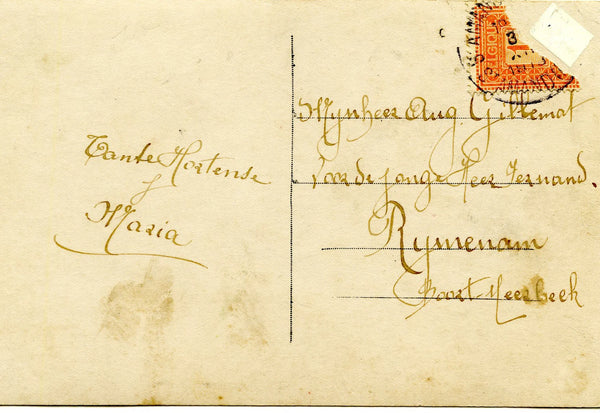 Tante Hortense
Maria
Mynheer Aug Gillemot
Voor de jonge Heer Fernand.
Rymenam
Boort Meerbeek